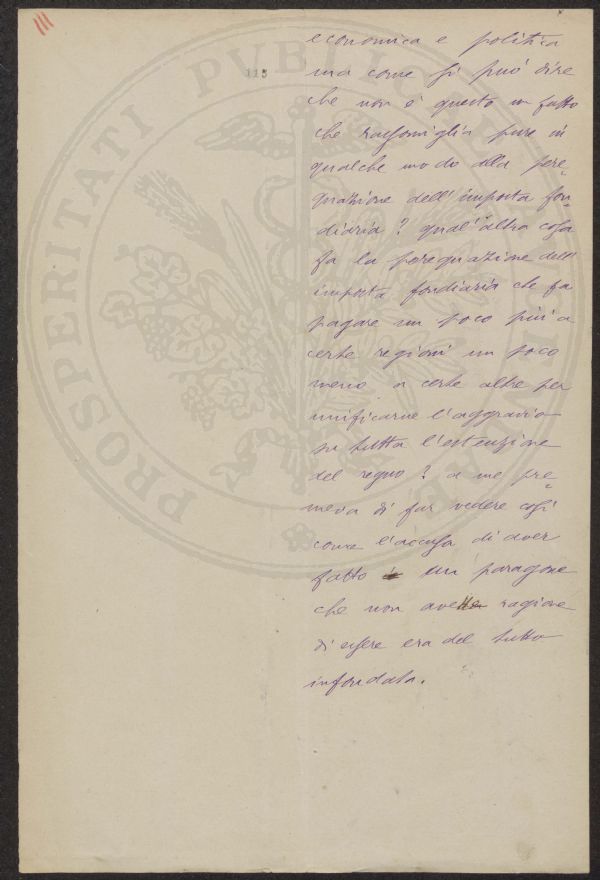 III
113
PROSPERITATI PVBLICAE
economica e politica
ma come si può dire
che non è questo un fatto
che rassomiglia pure in
qualche modo alla pere=
quazione dell'imposta fon=
diaria? qual'altra cosa
fa la perequazione dell'
imposta fondiaria che fa
pagare un poco più a
certe regioni un poco
meno a certe altre per
unificarne l'aggravio
su tutta l'estenzione
del regno? a me pre=
meva di far vedere così
come l'accusa di aver
fatto un paragone
che non avesse ragione
di essere era del tutto
infondata.